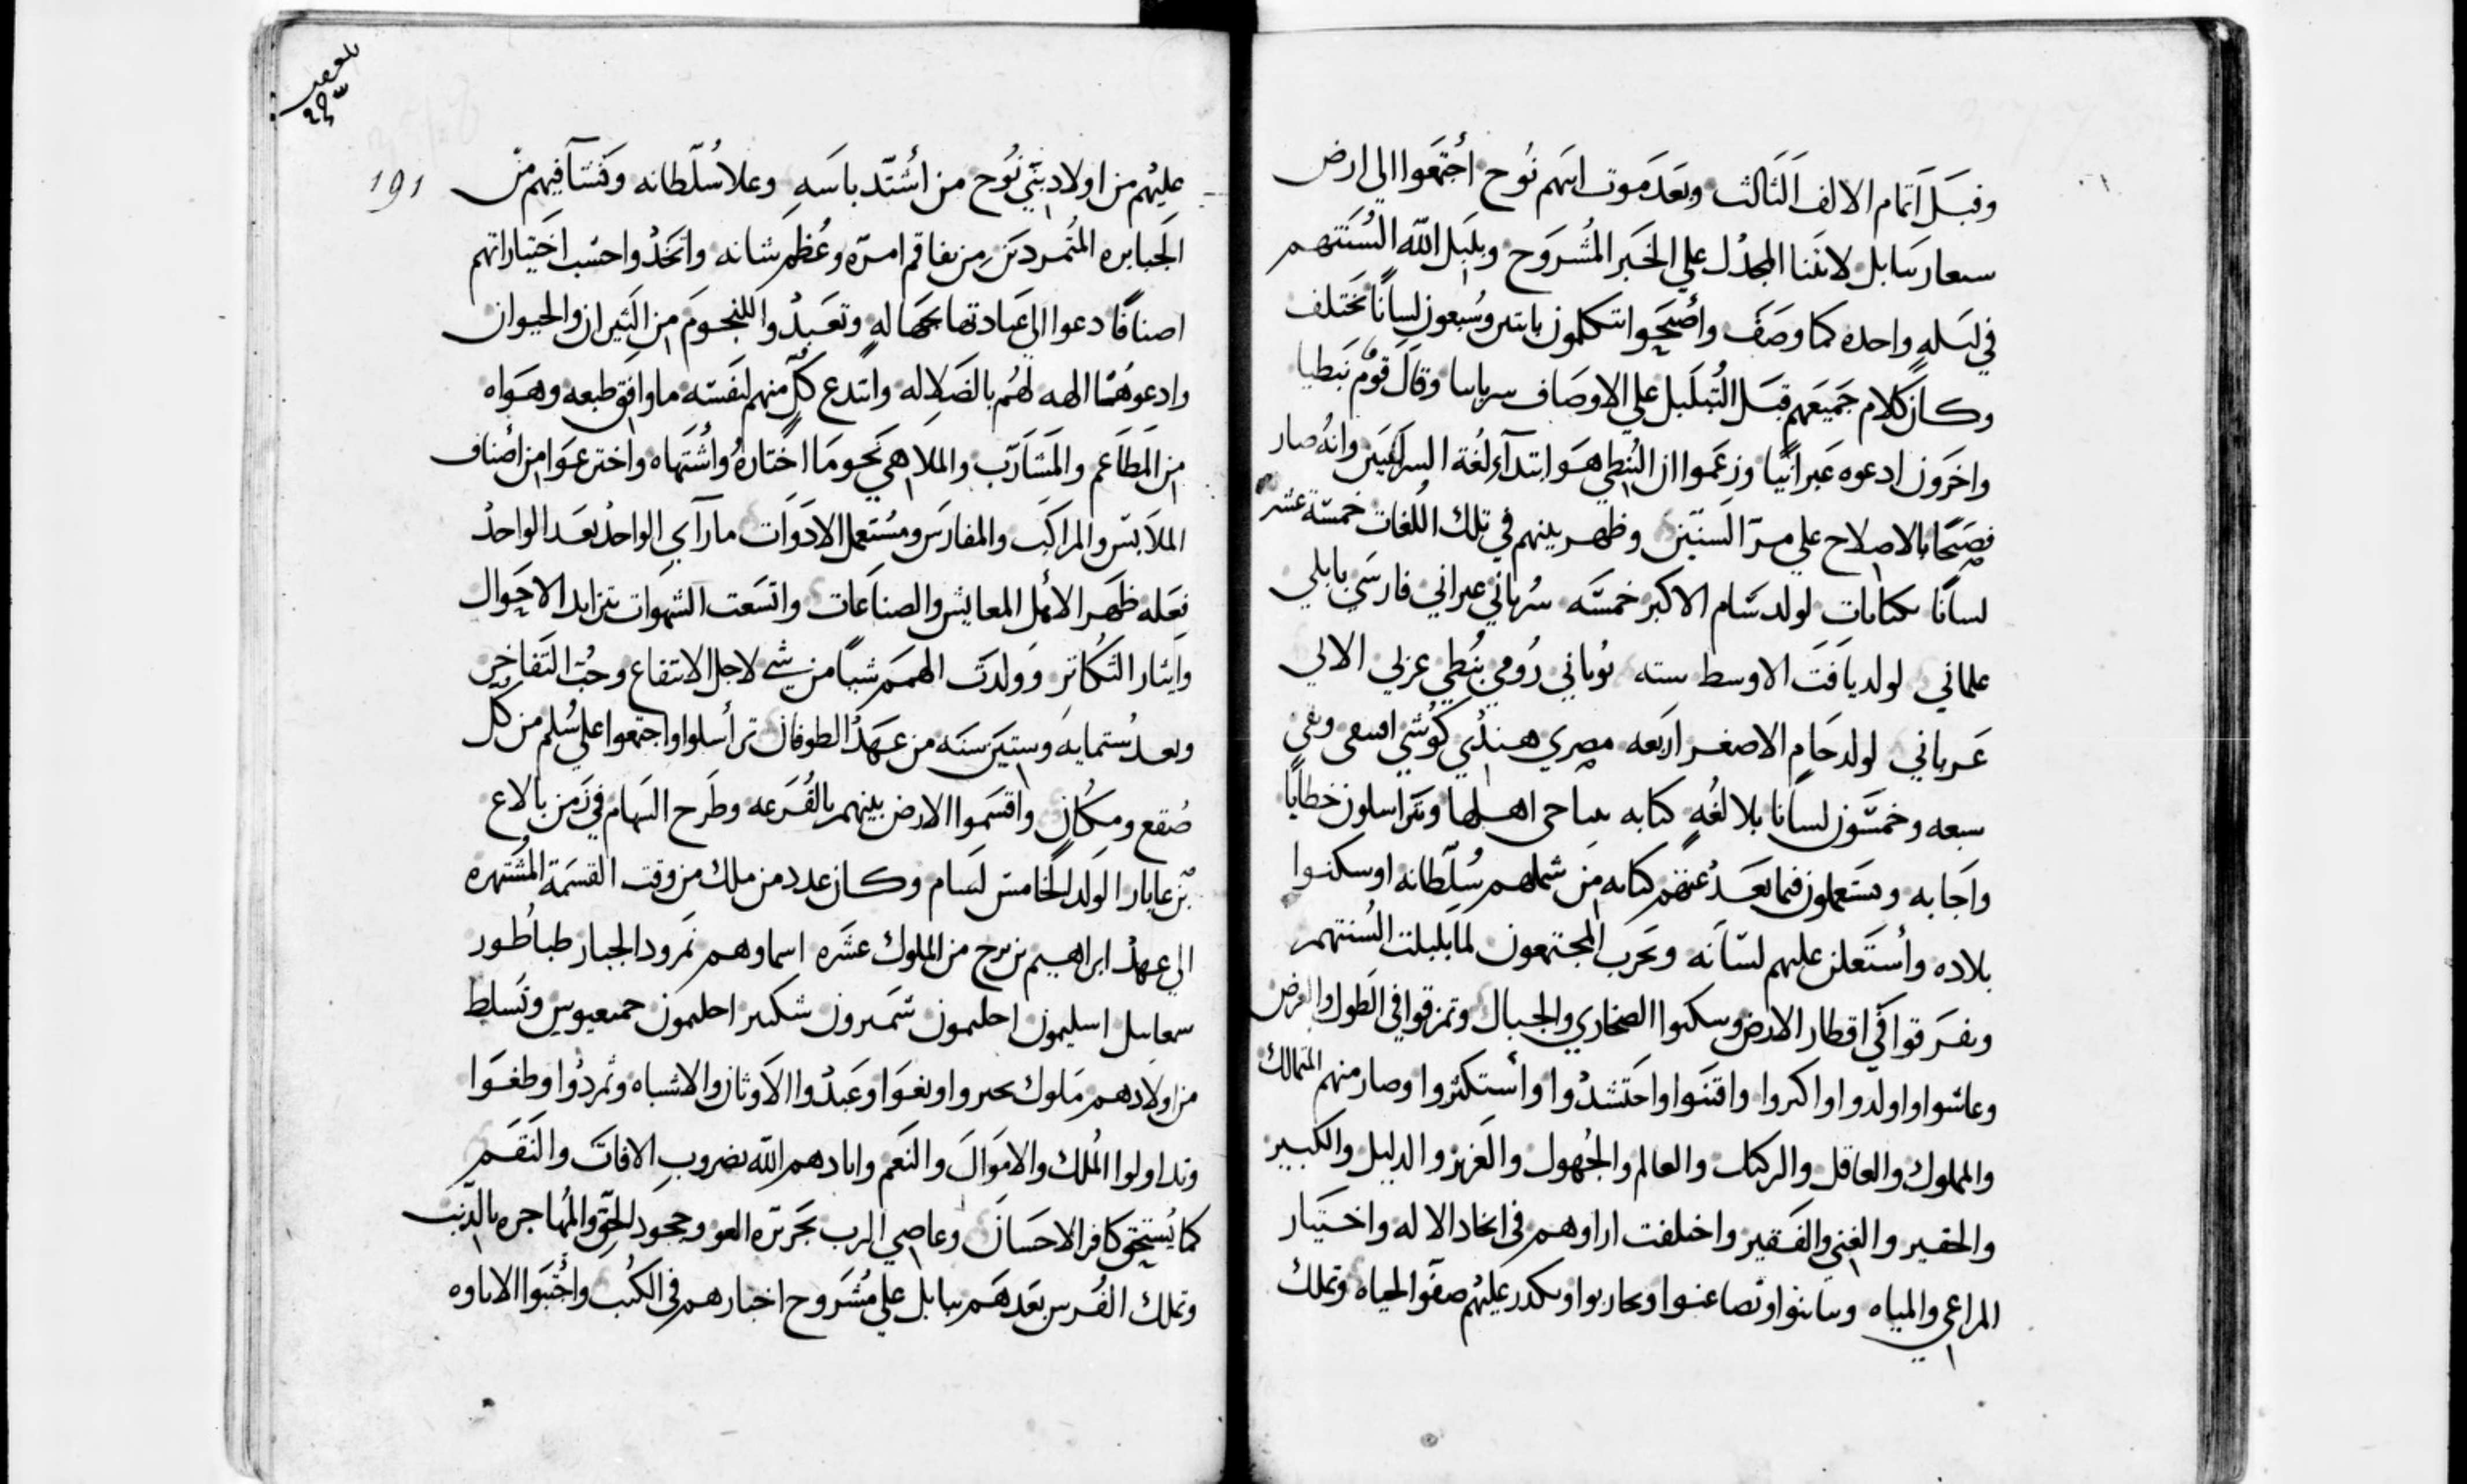 وقبل اتمام الالف الثالث وبعد موت ابيهم نوح أجتمعوا الي ارض
سنعار ببابل لابتنا المجدل علي الخبر المشروح وبلبل الله السنتهم
في ليله واحده كما وصف وأصبحوا يتكلمون باثنين وسبعون لسانًا تختلف
وكان كلام جميعهم قبل التبلبل علي الاوصاف سريانيا وقال قوم نبطيا
واخرون ادعوه عبرانيًا وزعموا ان النبطي هو ابتدآء لغة السريانيين وانه صار
فصيحًا بالاصلاح علي مرّ السنين وظهر بينهم في تلك اللغات خمسة عشر
لسانًا بكتابات لولد سام الاكبر خمسه سرياني عبراني فارسي بابلي
علماني لولد يافت الاوسط سته يوناني رومي نبطي الالي
عرباني لولد حام الاصغر اربعه مصري هندي كوشي وبقي
سبعه وخمسون لسانا بلا لغه كتابه اهلها ويتراسلون خطابًا
واجابه ويستعملون فيما بعد عنهم كتابه من شملهم سلطانه اوسكنوا
بلاده وأستعلن عليهم لسانه وتحرب المجتمعون لما بلبلت السنتهم
وتفرقوا في اقطار الارض وسكنوا الصحاري والجبال وتمزقوا في الطول والعرض
وعاشوا واولدوا واكبروا واقتنوا واحتشدوا وأستكثروا وصار منهم المالك
والمملوك والعاقل والركيك والعالم والجهول والعزيز والدليل والكبير
والحقير والغني والفقير واختلفت اراوهم في اتخاد الاله واختيار
المراعي والمياه وتباينوا وتضاغنوا وتحاربوا وتكدر عليهم صفو الحياه وتملك
بلغ
191
عليهم من اولاد بني نوح من أشتد باسه وعلا سلطانه ونشآ فيهم من
الجبابره المتمردين من تفاقم امره وعظم شانه واتخدوا حسب اختياراتهم
اصنافًا دعوا الي عبادتها بجهاله وتعبدوا للنجوم من النيران والحيوان
وادعوهما الهه لهم بالضلاله وابتدع كل منهم لنفسه ما وافق طبعه وهواه
من المطاعم والمشارب والملاهي نحو ما اختاره واشتهاه واخترعوا من أصناف
الملابس والمراكب والمفارس ومستعمل الادوات مارآي الواحد بعد الواحد
فعله ظهر الأمل المعايش والصناعات واتسعت الشهوات بتزايد الاحوال
وايثار التكاثر وولدت الهمم شيًا من شي لاجل الانتفاع وحب التفاخر
وبعد ستمايه وستين سنه من عهد الطوفان ترأسلوا واجتمعوا علي سلم من كل
صقع ومكان واقتسموا الارض بينهم بالقرعه وطرح السهام في زمن بالاع
بن عابار الولد الخامس لسام وكان عدد من ملك من وقت القسمة المشتهره
الي عهد ابراهيم بن ترح من الملوك عشره اسماوهم نمرود الجبار طباطور
اسليمون احليمون شمرون شكير احليمون وتسلط
من اولادهم ملوك تجبروا وبغوا وعبدوا الاوثان والاشباه وتمردوا وطغوا
وتداولوا الملك والاموال والنعم وابادهم الله بضروب الافات والنقم
كما يستحق كافر الاحسان وعاصي الرب بجريرة العو وجحود الحق والمهاجره بالدنب
وتملك الفرس بعدهم ببابل علي مشروح اخبارهم في الكتب وأجتبوا الاتاوه